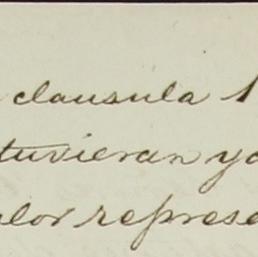 clausula 1
tuvieran ya
alor represe